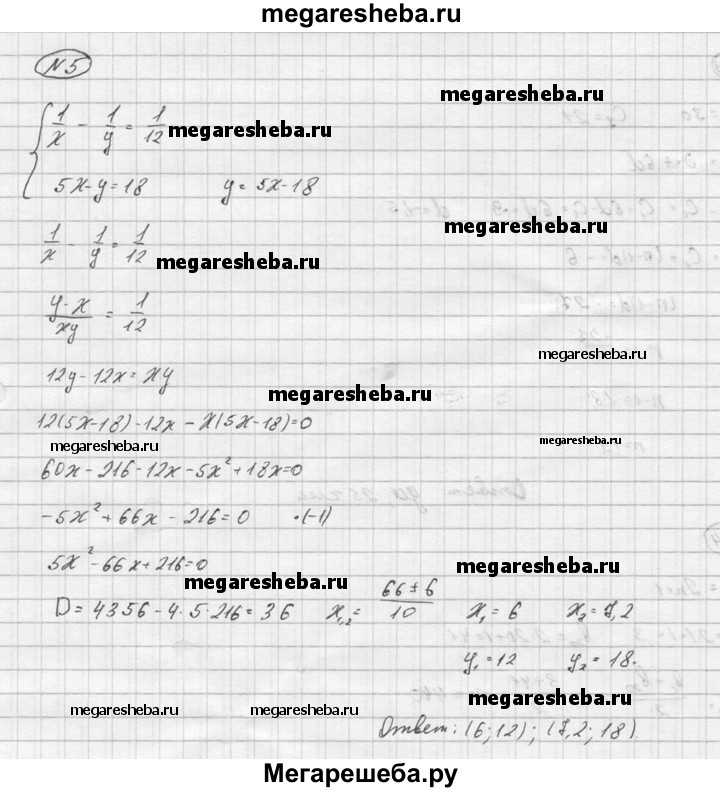 megaresheba.ru
№5
1/x - 1/y = 1/12
megaresheba.ru
megaresheba.ru
5x-y=18 y=5x-18
1/x - 1/y = 1/12
megaresheba.ru
megaresheba.ru
y-x/xy = 1/12
megaresheba.ru
12y-12x=xy
megaresheba.ru
12(5x-18)-12x-x(5x-18)=0
megaresheba.ru
megaresheba.ru
60x-216-12x-5x²+18x=0
-5x²+66x-216=0 ·(-1)
5x²-66x+216=0
megaresheba.ru
megaresheba.ru
D=4356-4·5·216=36 x₁,₂=66±6/10 x₁=6 x₂=7,2
y₁=12 y₂=18.
megaresheba.ru
megaresheba.ru
megaresheba.ru
Ответ: (6;12); (7,2;18)
Мегарешеба.ру